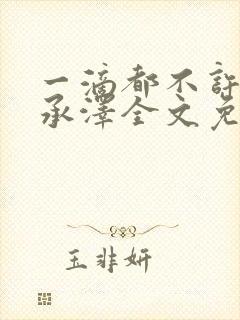 一滴都不许
承泽全文免
玉非妍